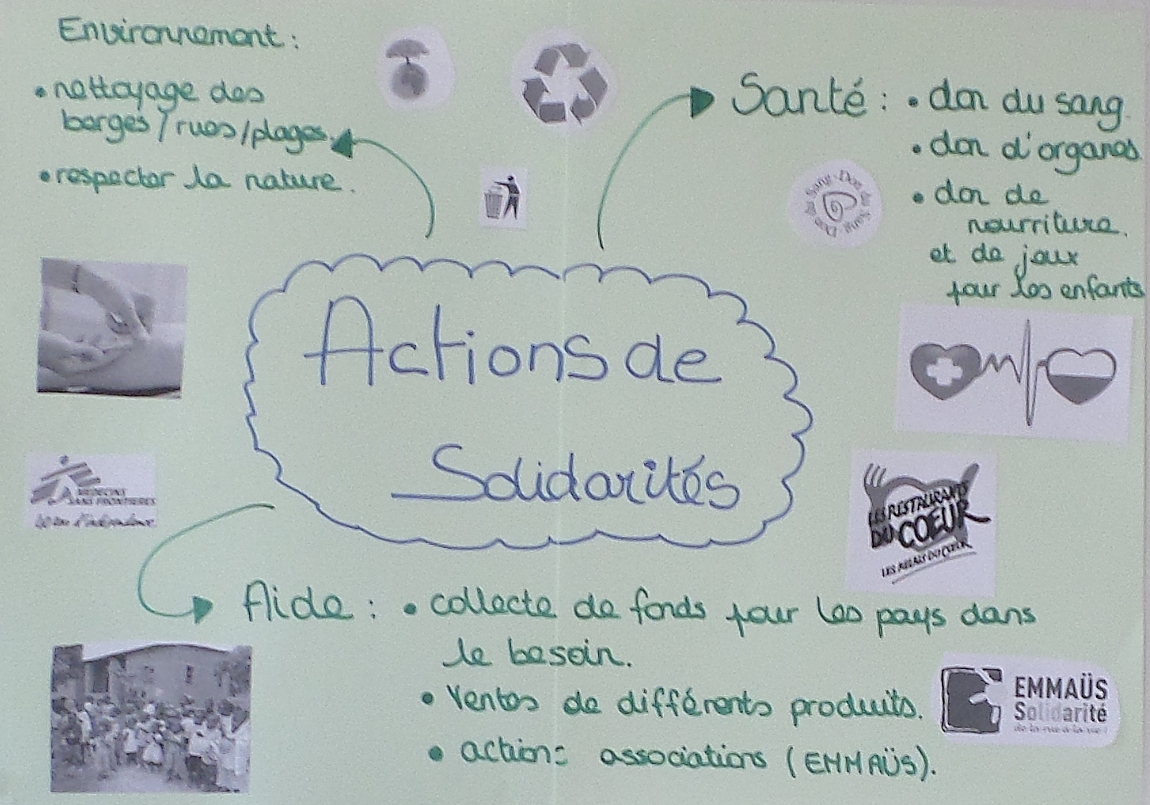 Environnement :
• nettoyage des
berges / rues / plages.
• respecter la nature.
Santé : • don du sang.
• don d'organes
• don de
nourriture.
et de jeux
pour les enfants
Don du Sang · Don du Sang
Actions de
Solidarités
MEDECINS
SANS FRONTIERES
d'indépendance
LES RESTAURANTS
DU COEUR
LES RELAIS DU COEUR
Aide : • collecte de fonds pour les pays dans
le besoin.
• Ventes de différents produits.
• action: associations (EMMAÜS).
EMMAÜS
Solidarité
de la rue à la vie !